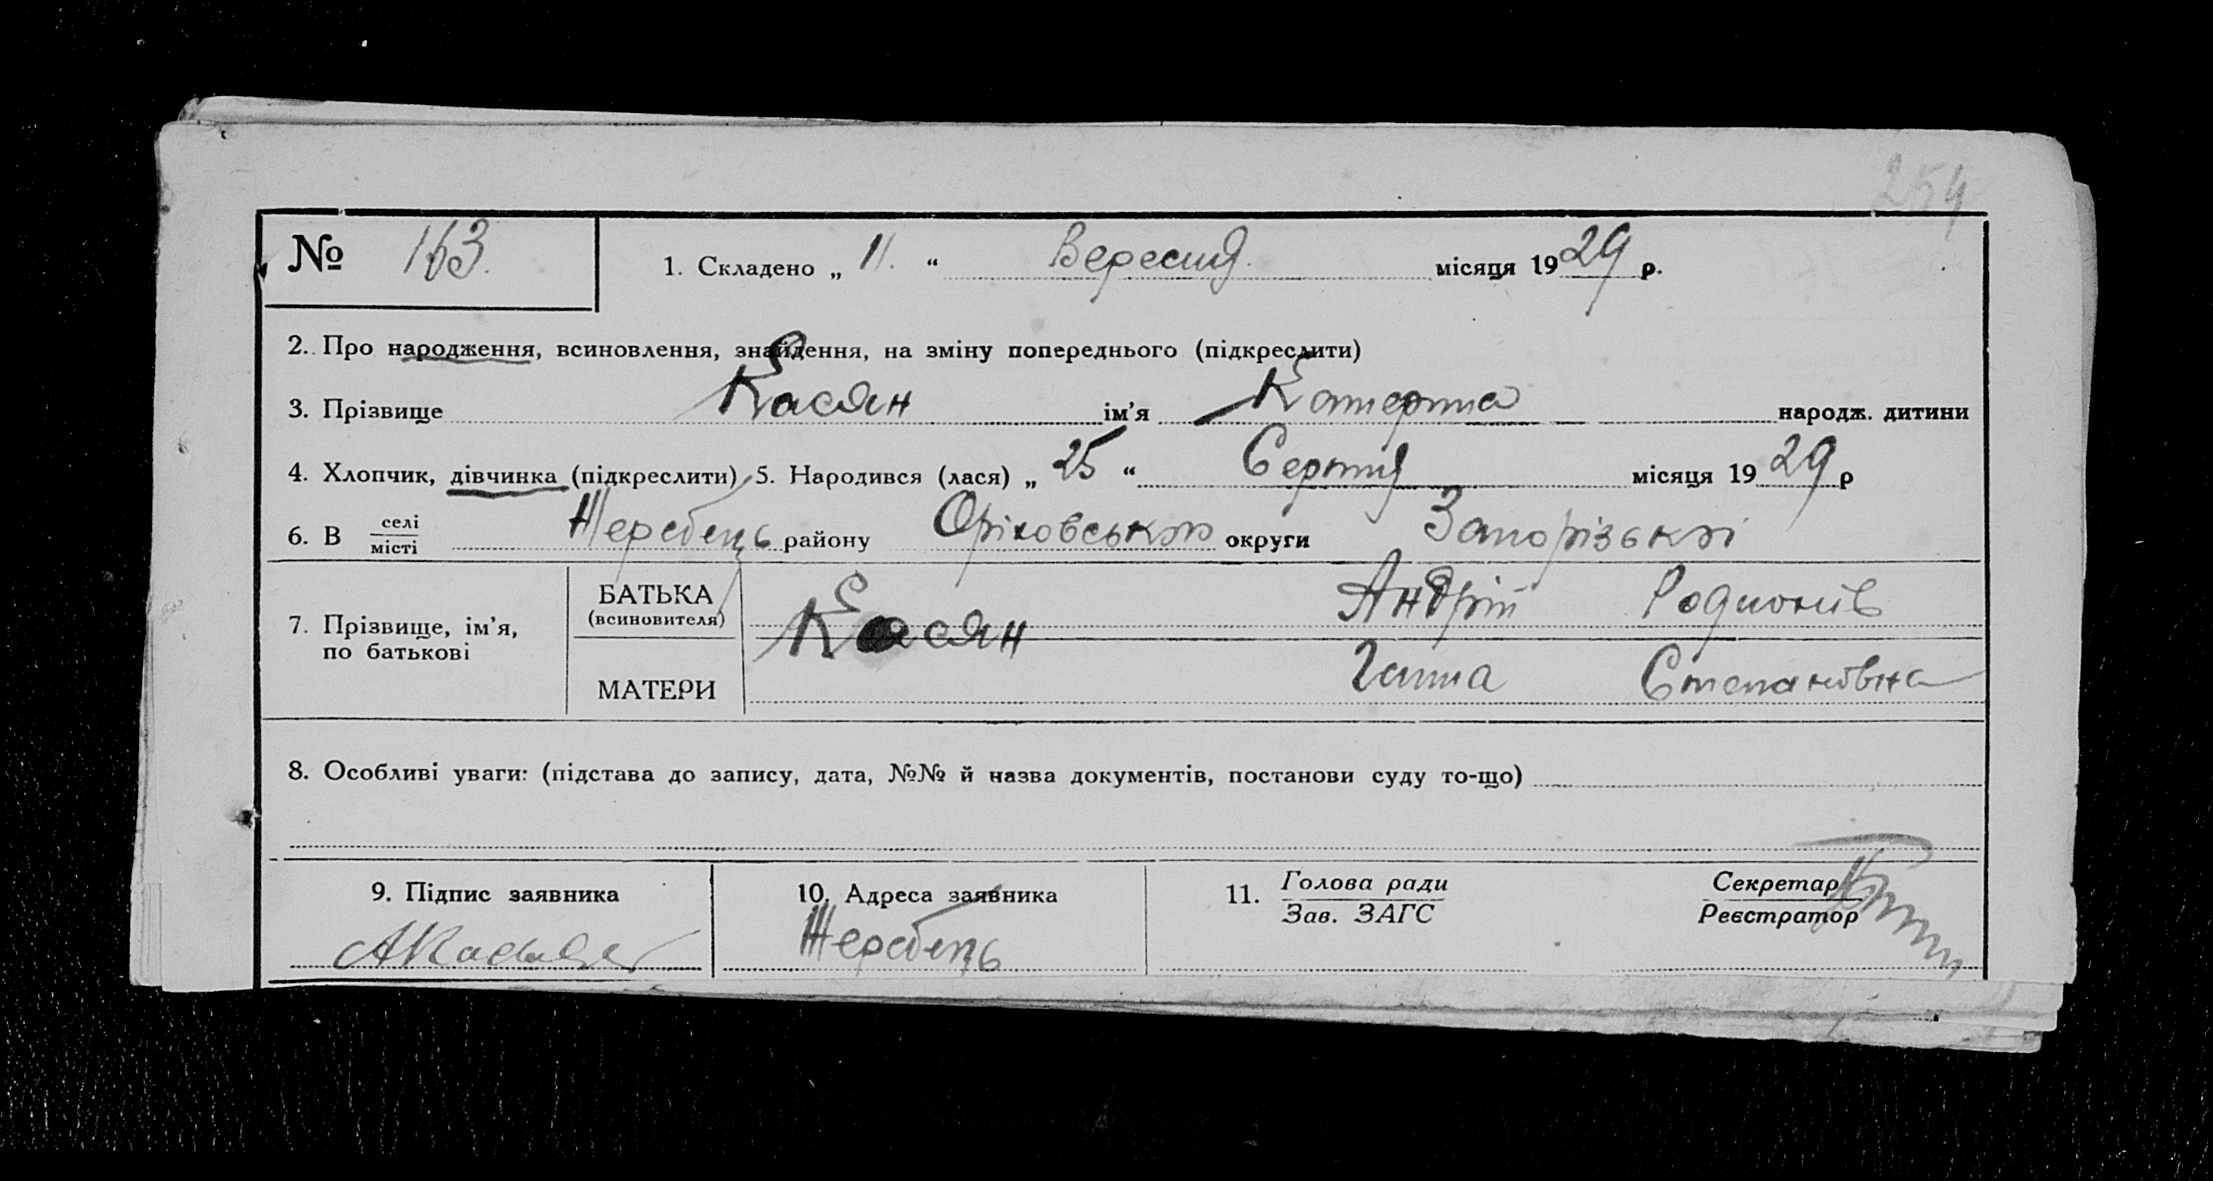 254
№ 163. 1. Складено „ 11. “ Вересня місяця 1929 р.
2. Про народження, всиновлення, знайдення, на зміну попереднього (підкреслити)
3. Прізвище Касян ім’я Катерина народж. дитини
4. Хлопчик, дівчинка (підкреслити) 5. Народився (лася) „ 25 “ Серпня місяця 1929 р
6. В селі/місті Жеребець району Оріховського округи Запорізької
7. Прізвище, ім’я, по батькові
БАТЬКА (всиновителя) Касян Андрій Родионів
МАТЕРИ Ганна Степановна
8. Особливі уваги: (підстава до запису, дата, №№ й назва документів, постанови суду то-що)
9. Підпис заявника 10. Адреса заявника 11. Голова ради/Зав. ЗАГС Секретар/Реєстратор
Жеребець